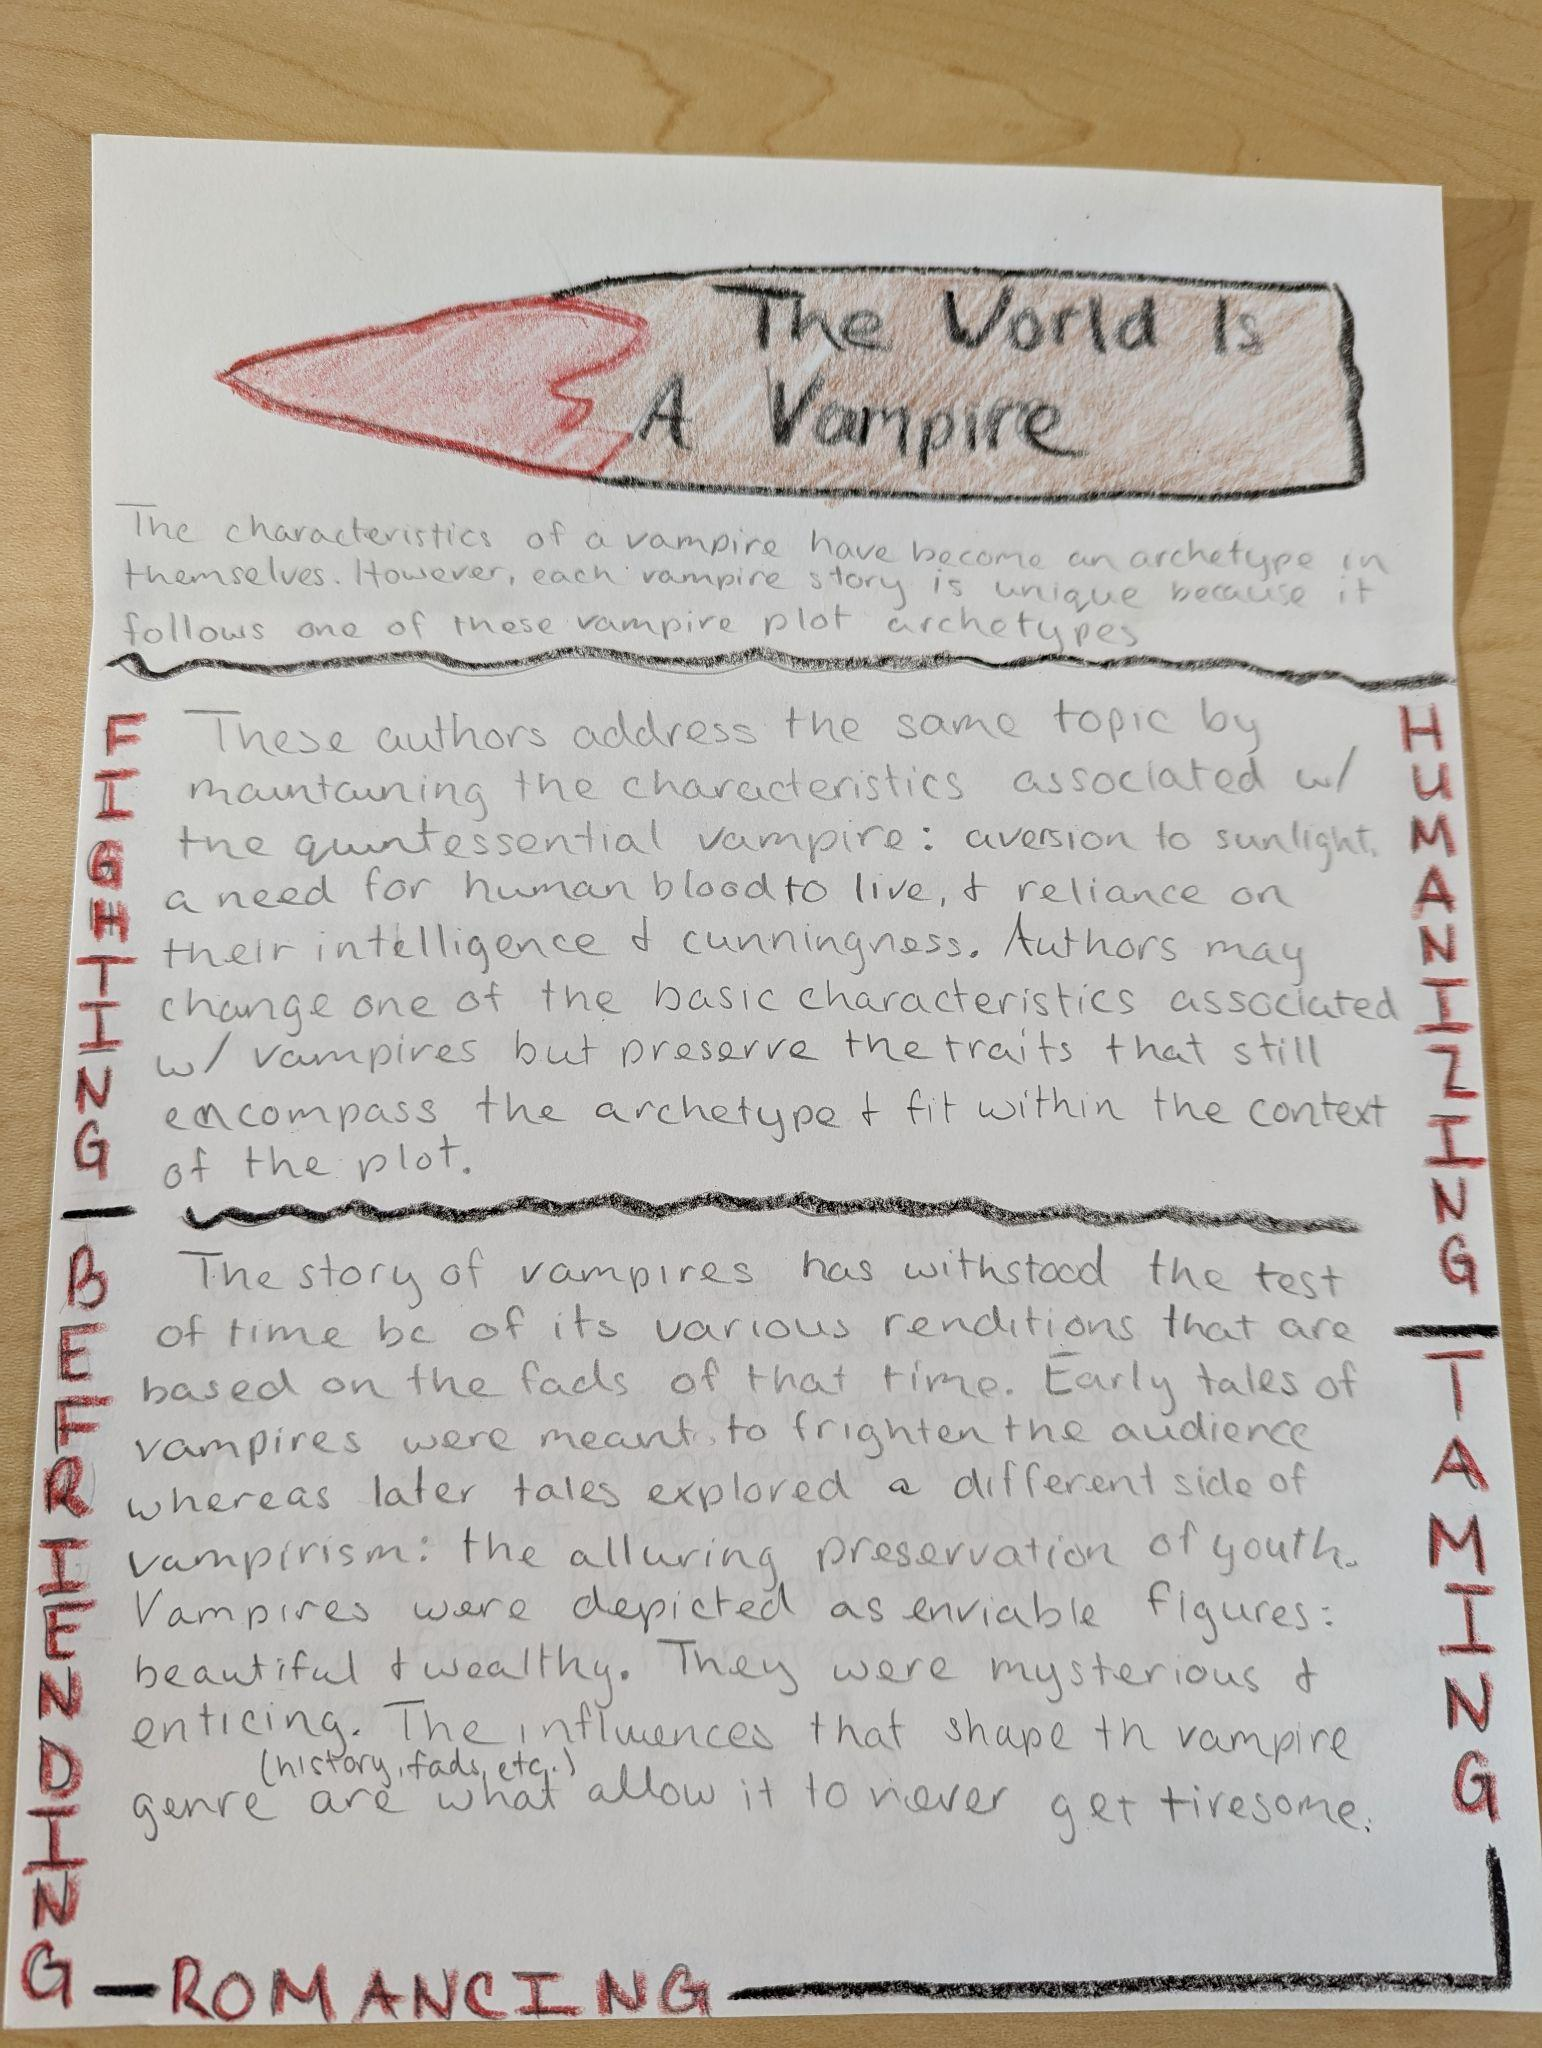 The World Is
A Vampire
The characteristics of a vampire have become an archetype in
themselves. However, each vampire story is unique because it
follows one of these vampire plot archetypes
FIGHTING
BEFRIENDING
ROMANCING
HUMANIZING
TAMING
These authors address the same topic by
maintaining the characteristics associated w/
the quintessential vampire: aversion to sunlight,
a need for human blood to live, & reliance on
their intelligence & cunningness. Authors may
change one of the basic characteristics associated
w/ vampires but preserve the traits that still
encompass the archetype & fit within the context
of the plot.
The story of vampires has withstood the test
of time bc of its various renditions that are
based on the fads of that time. Early tales of
vampires were meant to frighten the audience
whereas later tales explored a different side of
vampirism: the alluring preservation of youth.
Vampires were depicted as enviable figures:
beautiful & wealthy. They were mysterious &
enticing. The influences that shape th vampire
(history, fads, etc.)
genre are what allow it to never get tiresome.